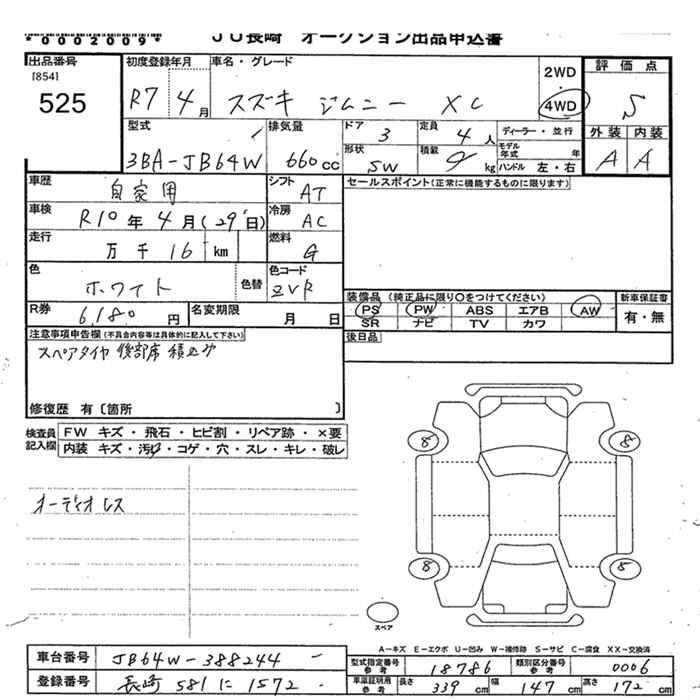 *0002009* JU長崎 オークション出品申込書
出品番号 初度登録年月 車名・グレード 2WD 評価点
[854] R7 4月 スズキ ジムニー XC 4WD S
525 型式 排気量 ドア 3 定員 4人 ディーラー・並行 外装 内装
3BA-JB64W 660cc 形状 SW 積載 kg モデル年式 年 ハンドル 左・右 A A
車歴 自家用 シフト AT セールスポイント(正常に機能するものに限ります)
車検 R10年4月(29日) 冷房 AC
走行 万 千 16 km 燃料 G
色 ホワイト 色替 色コード ZVR
装備品 (純正品に限り○をつけてください) 新車保証書
R券 6180円 名変期限 月 日 PS PW ABS エアB AW 有・無
SR ナビ TV カワ
注意事項申告欄(不具合内容等は具体的に記入して下さい) 後日品
スペアタイヤ 後部席 積込み
修復歴 有〔箇所 〕
検査員記入欄 FW キズ・飛石・ヒビ割・リペア跡・×要
内装 キズ・汚れ・コゲ・穴・スレ・キレ・破レ
8 8
オーディオレス
8 8
スペア
A-キズ E-エクボ U-凹み W-補修跡 S-サビ C-腐食 XX-交換済
車台番号 JB64W-388244 型式指定番号 参考 18786 類別区分番号 参考 0006
登録番号 長崎 581 に 1572 車庫証明用 参考 長さ 339cm 幅 147cm 高さ 172cm